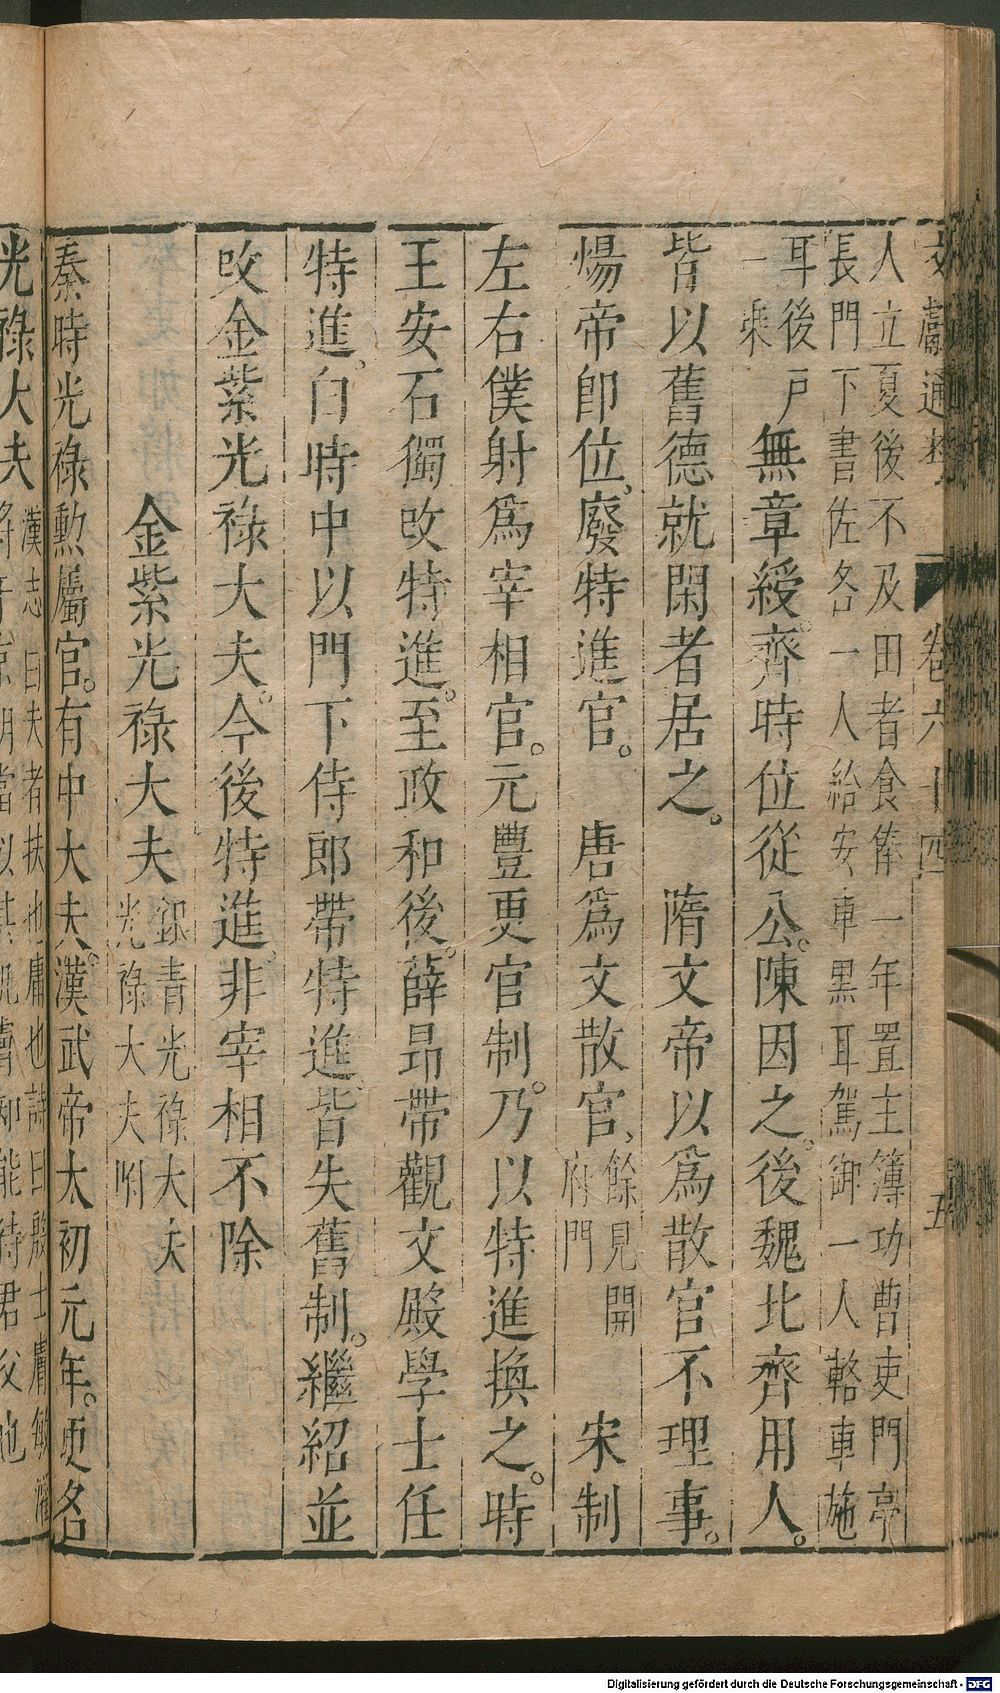 文獻通考 卷六十四 五
人立夏後不及田者食俸一年置主簿功曹吏門亭
長門下書佐各一人給安車黑耳駕御一人軺車施
耳後戶
一乘
無章綬齊時位從公陳因之後魏北齊用人。
皆以舊德就閑者居之。 隋文帝以爲散官不理事。
煬帝卽位廢特進官。 唐爲文散官、餘見開府門 宋制
左右僕射爲宰相官。元豐更官制。乃以特進換之。時
王安石獨改特進。至政和後。薛昂帶觀文殿學士任
特進。白時中以門下侍郎帶特進皆失舊制。繼紹並
改金紫光祿大夫。今後特進非宰相不除
金紫光祿大夫 銀青光祿大夫 光祿大夫附
秦時光祿勲屬官。有中大夫。漢武帝太初元年。更名
光祿大夫
漢志曰夫者扶也膚也詩曰殷士膚敏
Digitalisierung gefördert durch die Deutsche Forschungsgemeinschaft - DFG